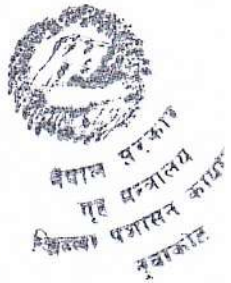 नेपाल सरकार
गृह मन्त्रालय
जिल्ला प्रशासन कार्या
नुवाकोट